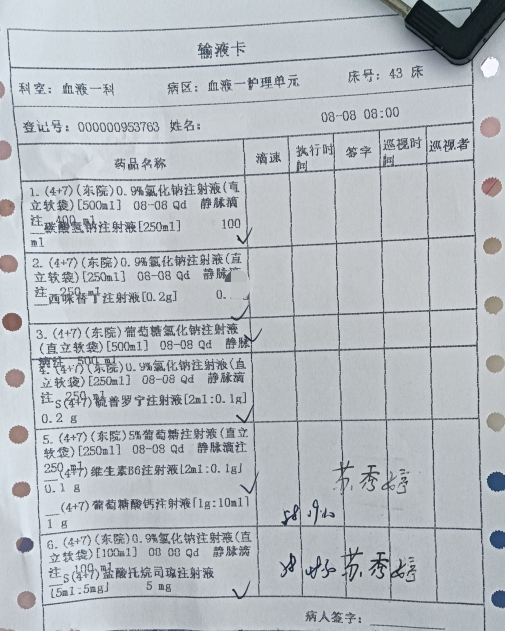 输液卡
科室: 血液一科 病区: 血液一护理单元 床号: 43 床
登记号: 000000953763 姓名: 08-08 08:00
药品名称 滴速 执行时间 签字 巡视时间 巡视者
1. (4+7)(东院)0.9%氯化钠注射液(直
立软袋)[500ml] 08-08 Qd 静脉滴
注 400 ml
__碳酸氢钠注射液[250ml] 100
ml
2. (4+7)(东院)0.9%氯化钠注射液(直
立软袋)[250ml] 08-08 Qd 静脉滴
注 250 ml
__西咪替丁注射液[0.2g] 0.
3. (4+7)(东院)葡萄糖氯化钠注射液
(直立软袋)[500ml] 08-08 Qd 静脉
滴注 500 ml
4. (4+7)(东院)0.9%氯化钠注射液(直
立软袋)[250ml] 08-08 Qd 静脉滴
注 250 ml
__S(4+7)硫普罗宁注射液[2ml:0.1g]
0.2 g
5. (4+7)(东院)5%葡萄糖注射液(直立
软袋)[250ml] 08-08 Qd 静脉滴注
250 ml
__(4+7)维生素B6注射液[2ml:0.1g]
0.1 g
苏秀婷
__(4+7)葡萄糖酸钙注射液[1g:10ml]
1 g
6. (4+7)(东院)0.9%氯化钠注射液(直
立软袋)[100ml] 08-08 Qd 静脉滴
注 100 ml
__S(4+7)盐酸托烷司琼注射液
[5ml:5mg] 5 mg
苏秀婷
病人签字: